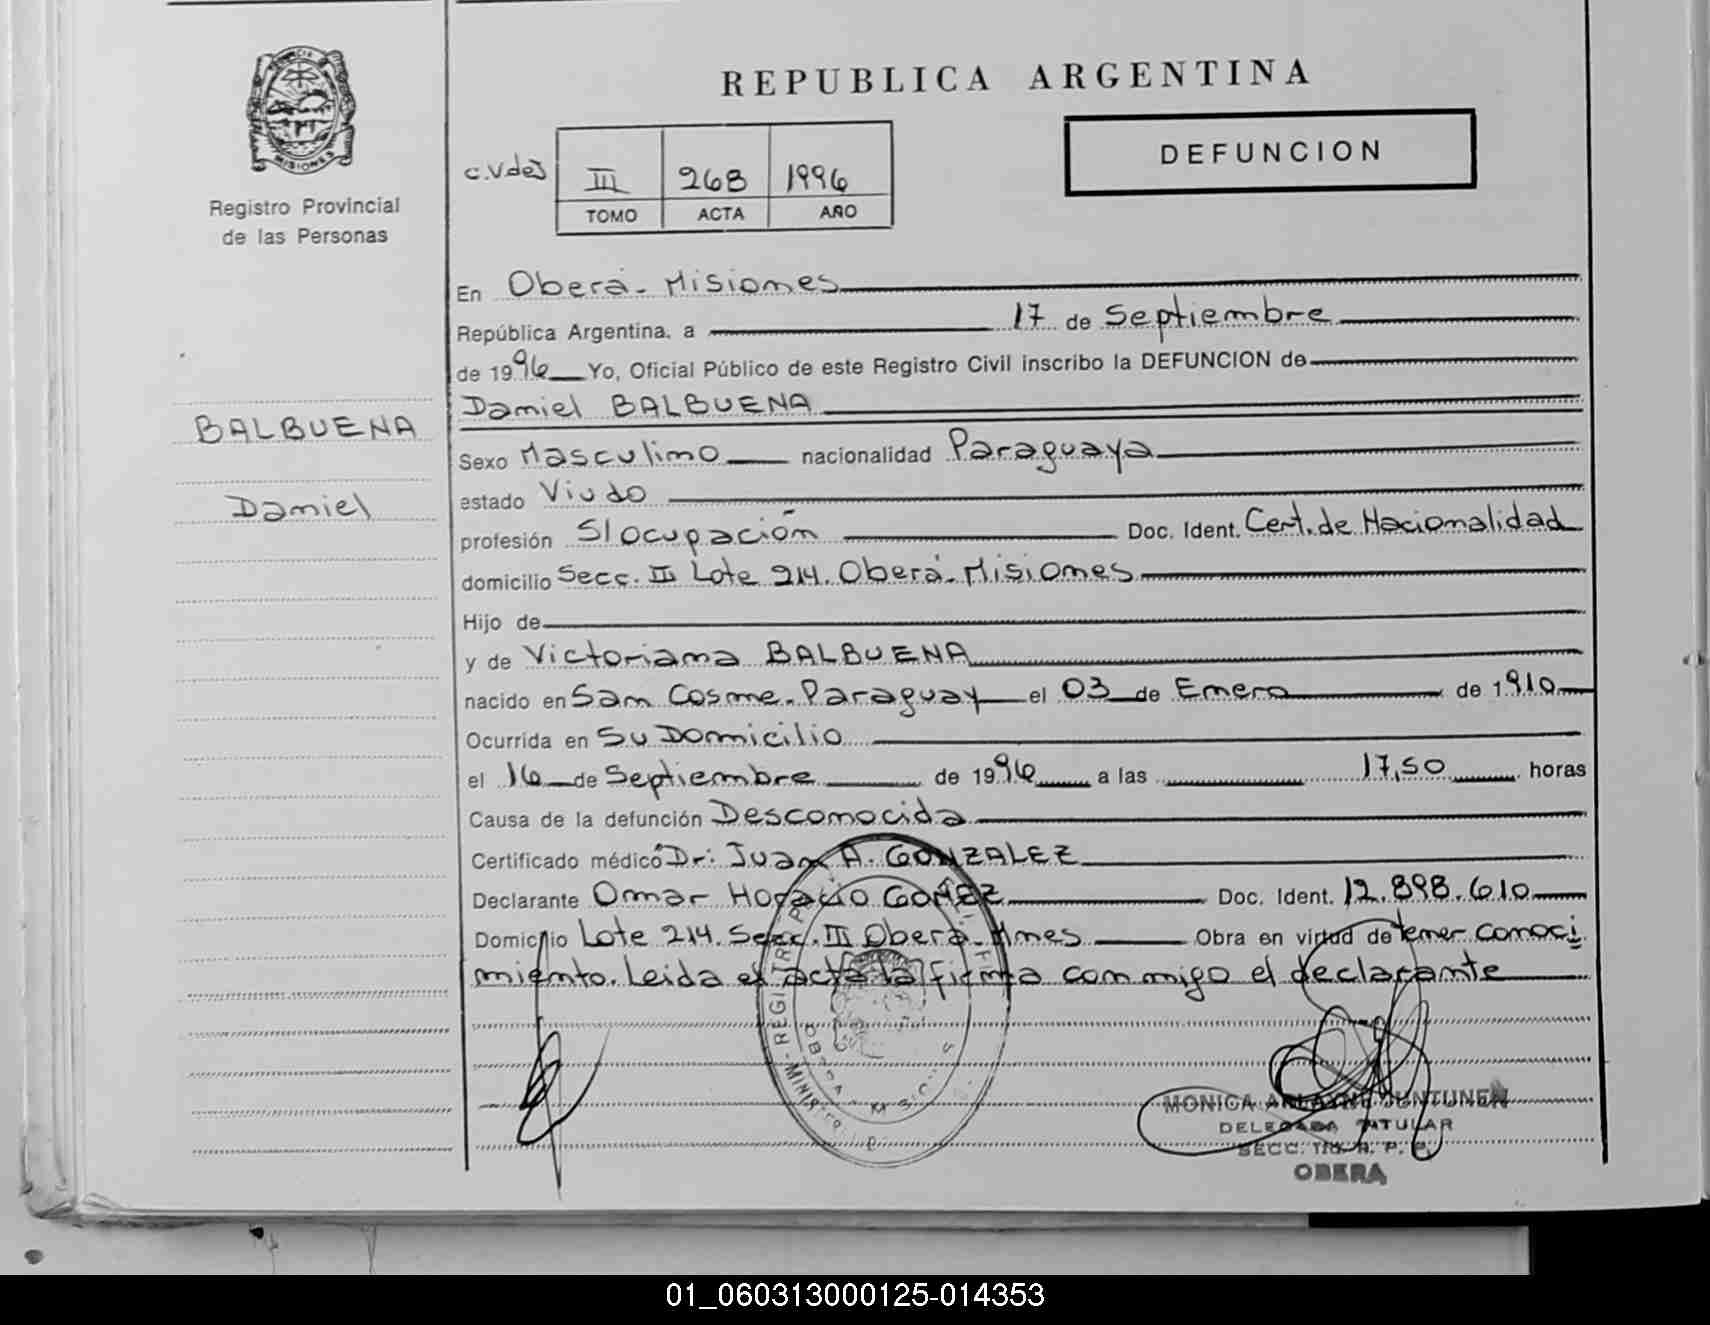 REPUBLICA ARGENTINA
DEFUNCION
MISIONES
Registro Provincial
de las Personas
c.Vdes III 268 1996
TOMO ACTA AÑO
BALBUENA
Daniel
En Oberá - Misiones
República Argentina, a 17 de Septiembre
de 1996 Yo, Oficial Público de este Registro Civil inscribo la DEFUNCION de
Daniel BALBUENA
Sexo Masculino nacionalidad Paraguaya
estado Viudo
profesión S/ocupación Doc. Ident. Cert. de Nacionalidad
domicilio Secc. III Lote 214. Oberá - Misiones
Hijo de
y de Victoriana BALBUENA
nacido en San Cosme - Paraguay el 03 de Enero de 1910
Ocurrida en Su Domicilio
el 16 de Septiembre de 1996 a las 17,50 horas
Causa de la defunción Desconocida
Certificado médico Dr: Juan A. GONZALEZ
Declarante Omar Horacio GOMEZ Doc. Ident. 12.898.610
Domicilio Lote 214. Secc. III Oberá - Mnes Obra en virtud de tener conoci
miento. Leida el acta la firma conmigo el declarante
MONICA JUNTUNEN
DELEGADA TITULAR
SECC. R. P. P.
OBERA
01_060313000125-014353